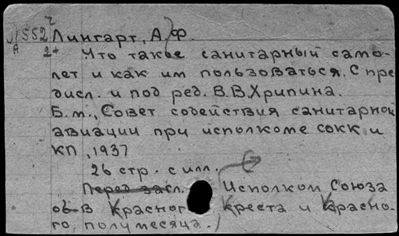 552 Лингарт, А.Ф.
А 2
Что такое санитарный само-
лет и как им пользоваться. С пре
дисл. и под ред. В.В.Хрипина.
Б.м., Совет содействия санитарной
авиации при исполкоме сокк и
КП, 1937
26 стр. с илл.
Перед засл. Исполком Союза
об-в Красного креста и Красно-
го, полумесяца.)